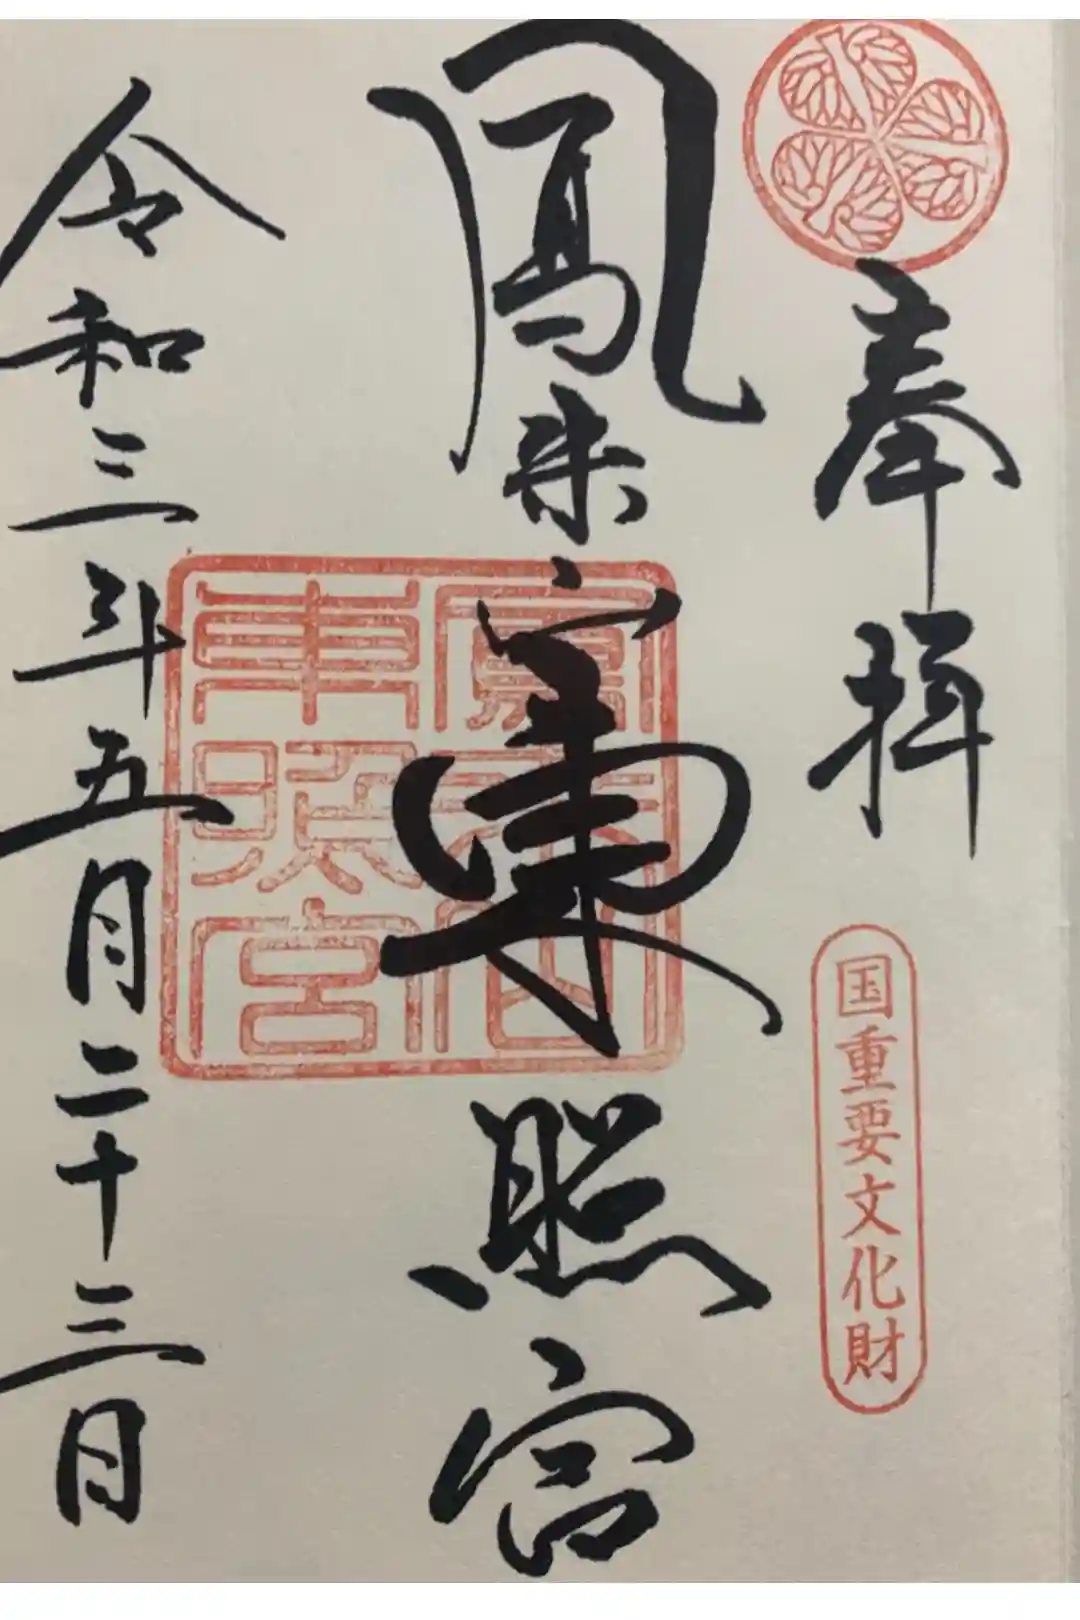 奉拝
国重要文化財
鳳来山東照宮
鳳来山東照宮
令和三年五月二十三日